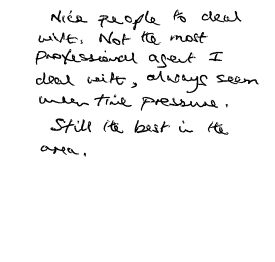 Nice people to deal
with. Not the most
professional agent I
deal with, always seem
under time pressure.
Still the best in the
area.